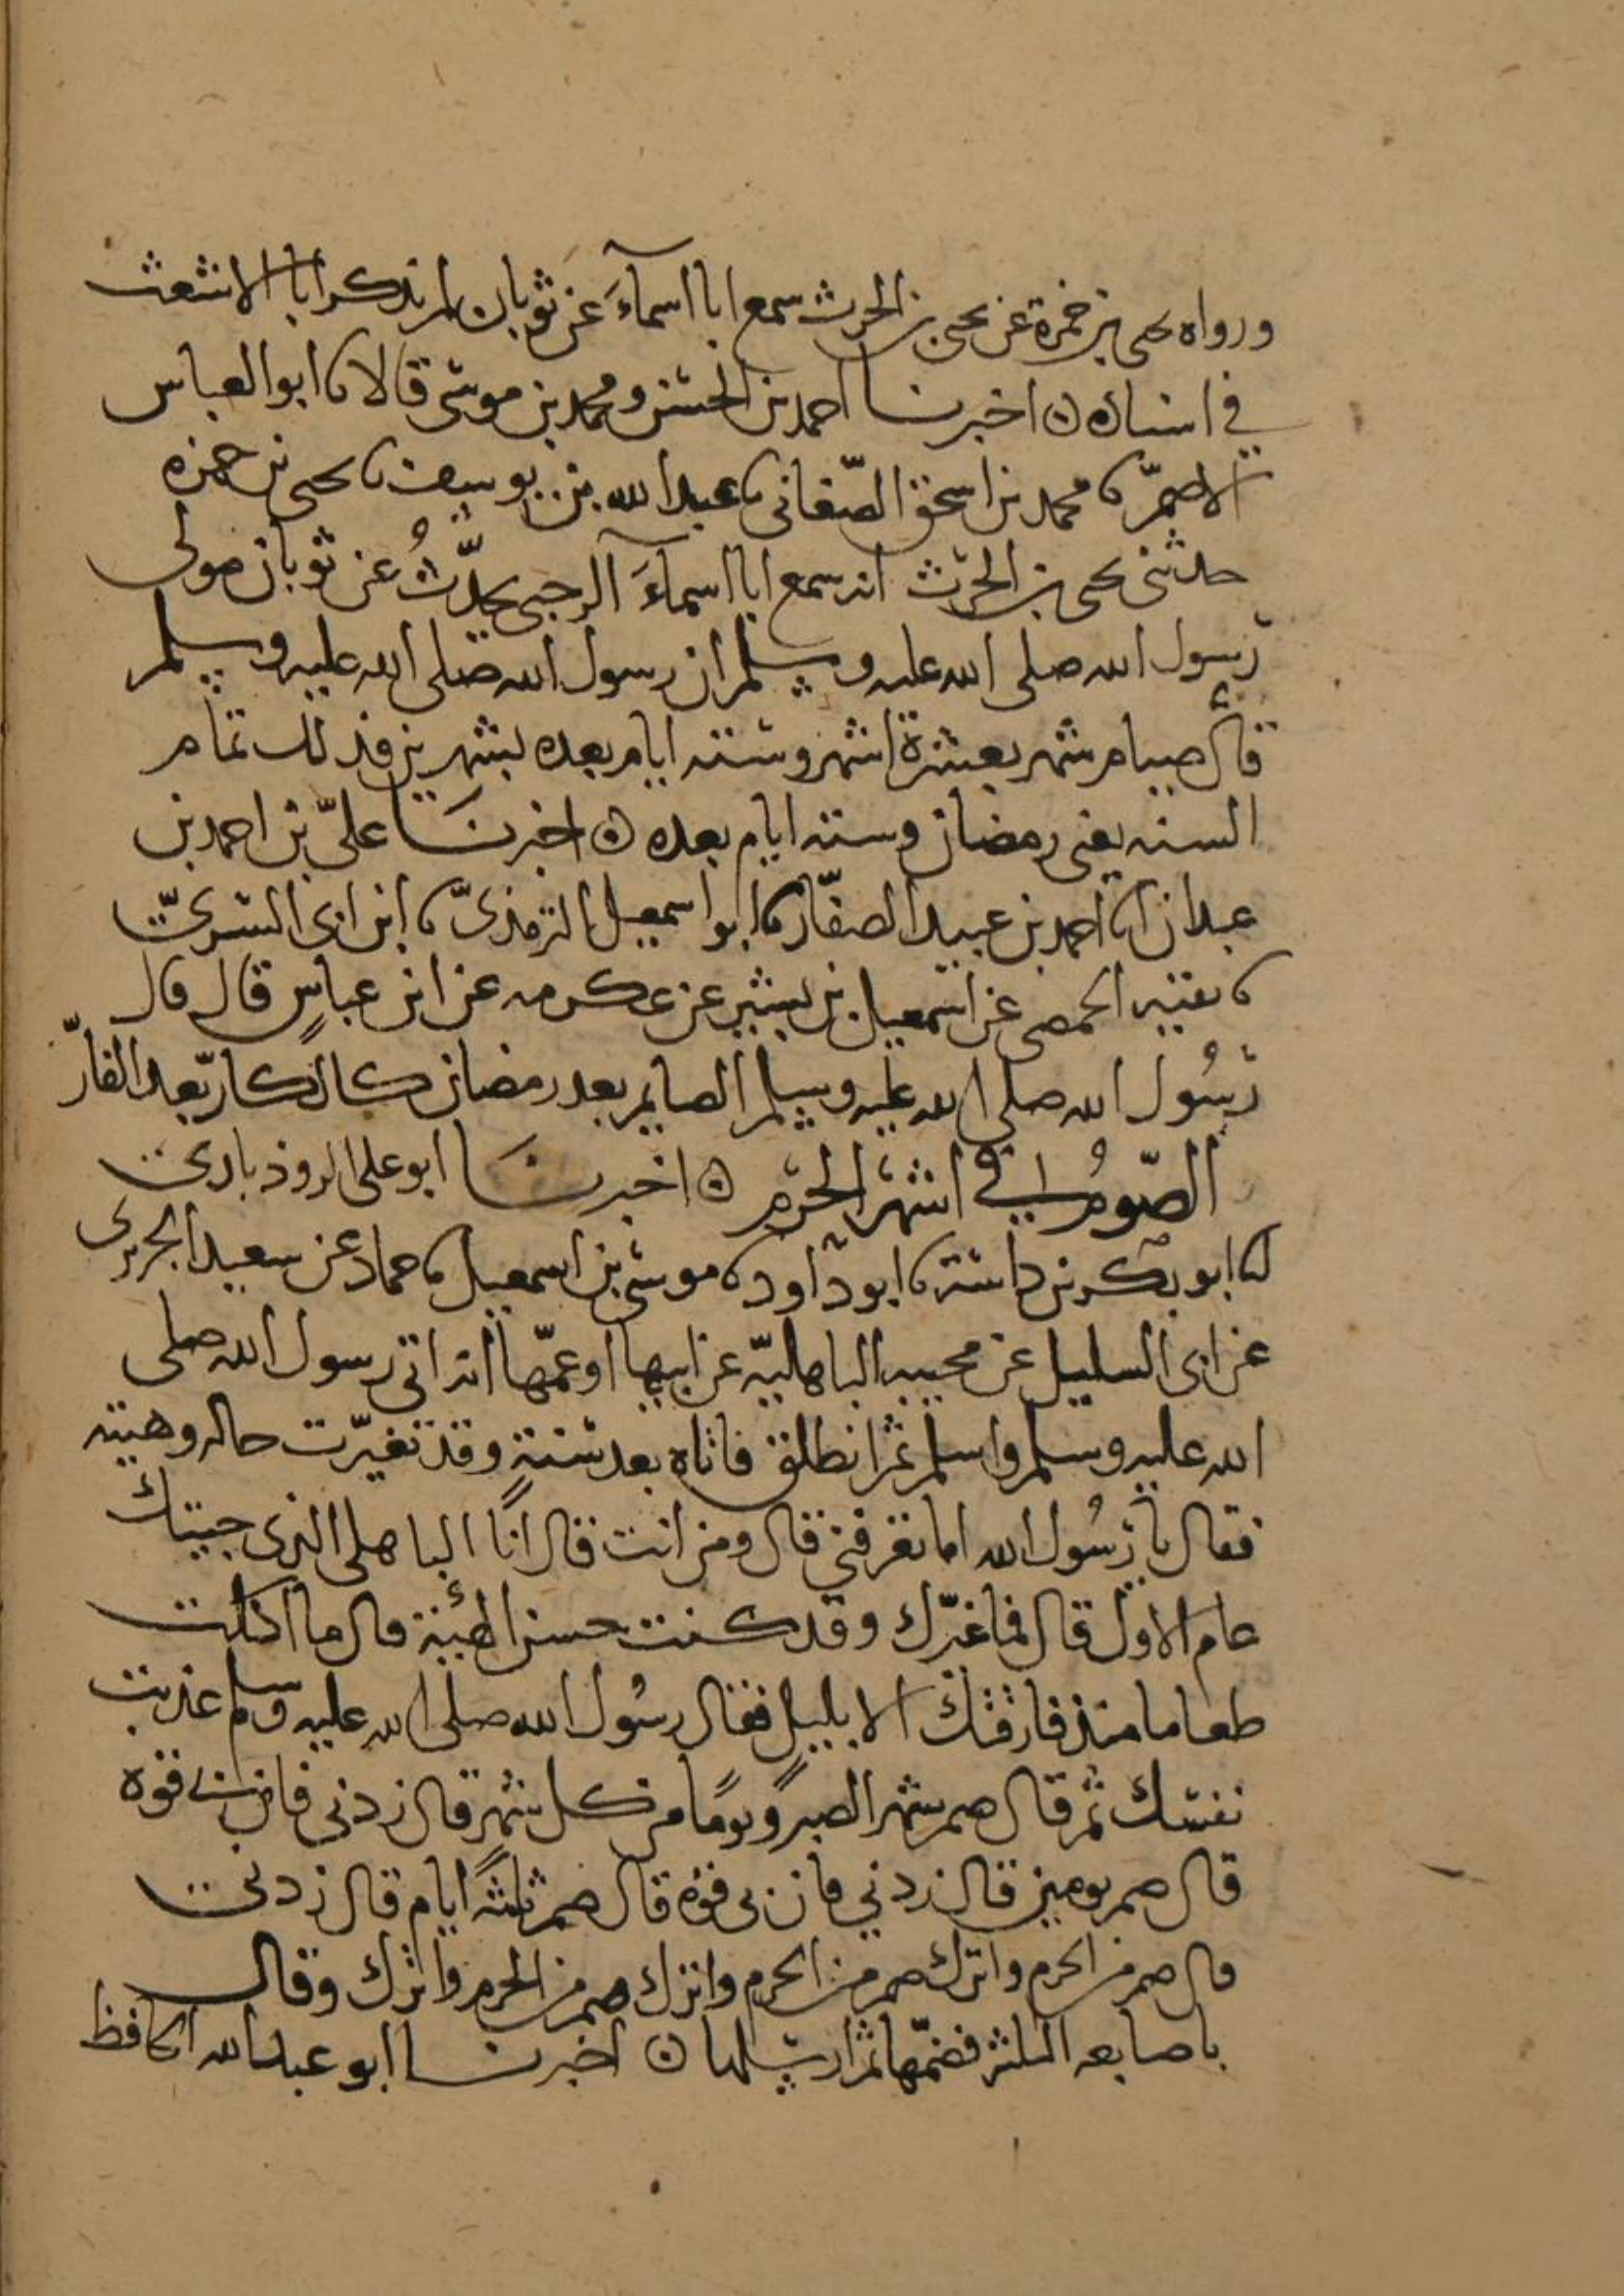 ورواه يحيى بن حمزة عن يحيى بن الحرث سمع ابا اسماءَ عن ثوبان لم يذكر ابا الاشعث
في اسناده ۞ اخبرنا احمد بن الحسن ومحمد بن موسى قالا نا ابو العباس
الاصمّ نا محمد بن اسحق الصّغاني نا عبد الله بن يوسف نا يحيى بن حمزه
حدثني يحيى بن الحرث انه سمع ابا اسماءَ الرحبي يحدّثُ عن ثوبان مولى
رسول الله صلى الله عليه وسلم ان رسول الله صلى الله عليه وسلم
قال صيام شهر بعشرة اشهر وستة ايام بعده بشهرين فذلك تمام
السنه يعني رمضان وستة ايام بعده ۞ اخبرنَا عليّ بن احمد بن
عبدان انا احمد بن عبيد الصفّار نا ابو اسمعيل الترمذيّ نا ابن ابي السريّ
نا بقيه الحمصي عن اسمعيل بن بشير عن عكرمه عن ابن عباسٍ قال قال
رسُول الله صلى الله عليه وسلم الصايم بعد رمضان كالكارّ بعد الفارّ
الصّومُ في اشهر الحرم ۞ اخبرنَا ابو على الروذباري
انا ابو بكر بن داسة نا ابو داود نا موسى بن اسمعيل نا حماد عن سعيد الجريرى
عن ابى السليل عن مجيبه الباهليّه عن ابيها او عمّها انه اتى رسول الله صلى
الله عليه وسلم واسلم ثم انطلق فاتاه بعد سنةٍ وقد تغيّرت حاله وهيته
فقال يا رسُول الله اما تعرفني قال ومن انت قال انَا الباهلي الذي جيتك
عام الاول قال فما غيّرك وقد كنت حسن الهيئة قال ما اكلت
طعاما منذ فارقتك الا بليلٍ فقال رسُول الله صلى الله عليه وسلم عذبت
نفسك ثم قال صم شهر الصبر ويومًا من كل شهرٍ قال زدني فان بي قوه
قال صم يومين قال زدني فان بي قوه قال صم ثلثةَ ايام قال زدني
قال صم من الحرم واترك صم من الحرم واترك صم من الحرم واترك وقال
باصابعه الثلثه فضمّها ثم ارسلها ۞ اخبرنا ابو عبد الله الحافظ